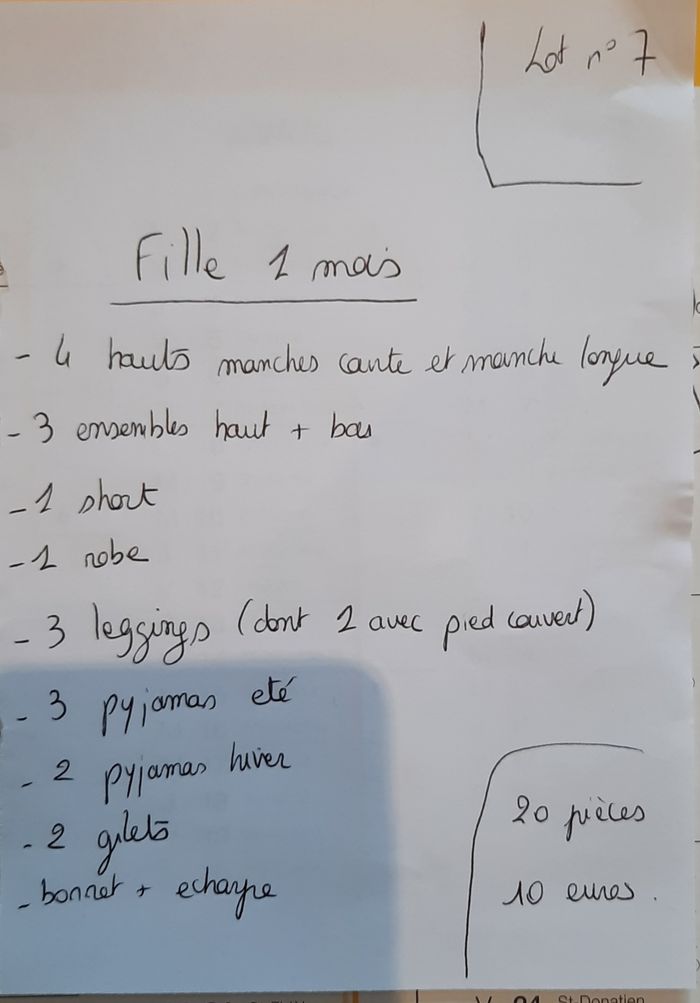 Lot n° 7
Fille 1 mois
- 4 hauts manches courte et manche longue
- 3 ensembles haut + bas
- 1 short
- 1 robe
- 3 leggings (dont 1 avec pied couvert)
- 3 pyjamas eté
- 2 pyjamas hiver
- 2 gilets
- bonnet + echarpe
20 pièces
10 euros.
St-Donatien